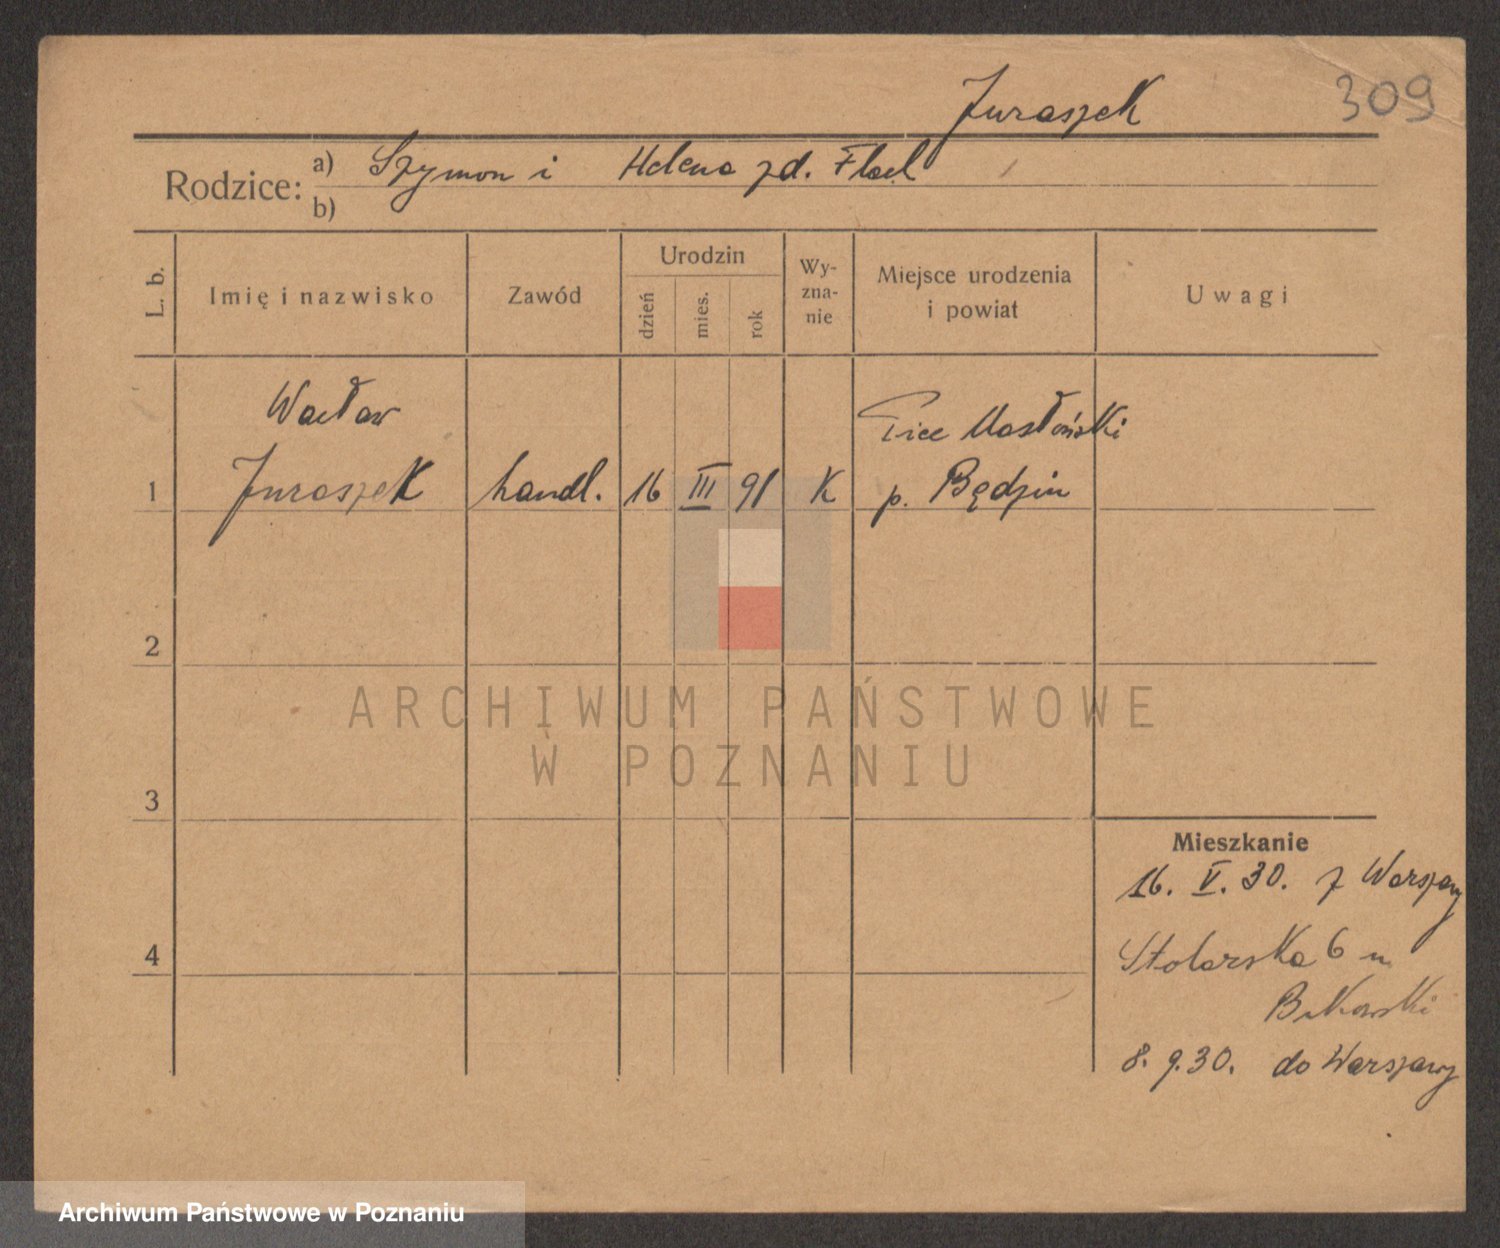 309
Juraszek
Rodzice: a) Szymon i Helena zd. Flack
b)
L. b. Imię i nazwisko Zawód Urodzin dzień mies. rok Wyznanie Miejsce urodzenia i powiat Uwagi
Wacław Maskoński
1 Juraszek handl. 16 III 91 K p. Będzin
2
3
4
Mieszkanie
16. V. 30. z Warszawy
Stolarska 6 u
8. 9. 30. do Warszawy
ARCHIWUM PAŃSTWOWE
W POZNANIU
Archiwum Państwowe w Poznaniu